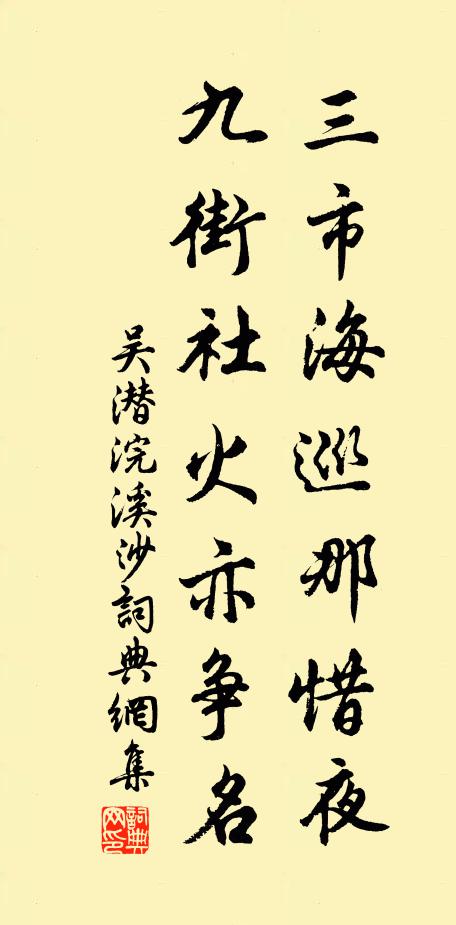 三市海巡那惜夜
九街社火亦争名
吴潜浣溪沙詞典網集
詞典网印